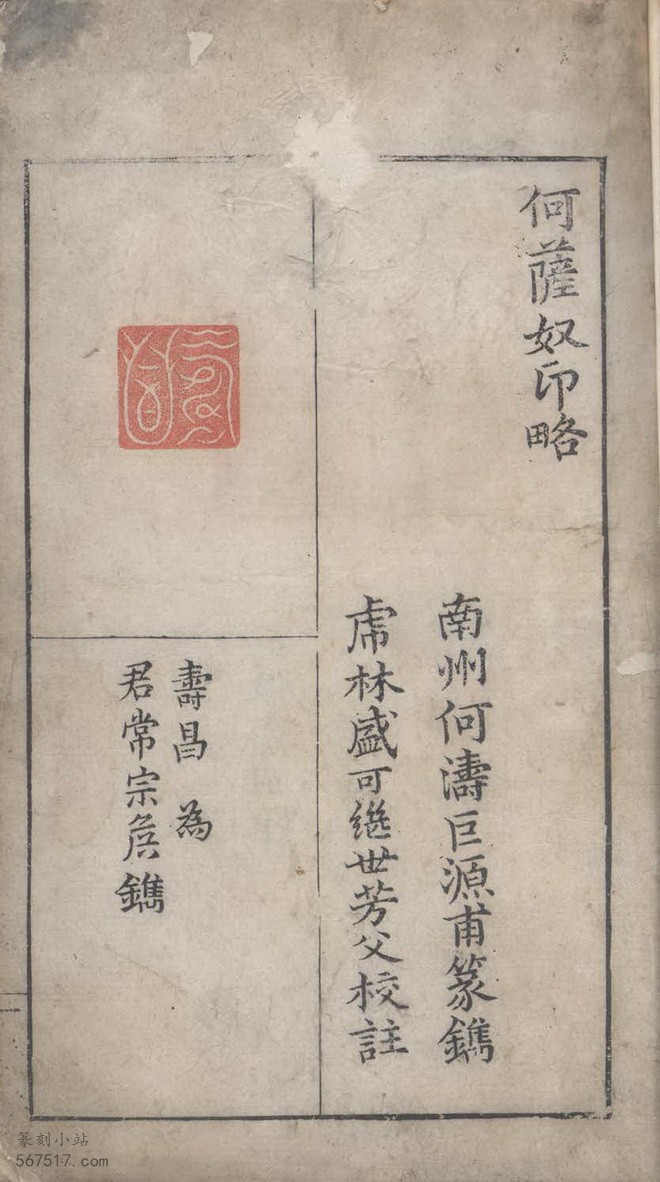 何薩奴印略
南州何濤巨源甫篆鐫
虎林盛可継世芳父校註
壽昌 為
君常宗侯鐫
篆刻小站
567517.com